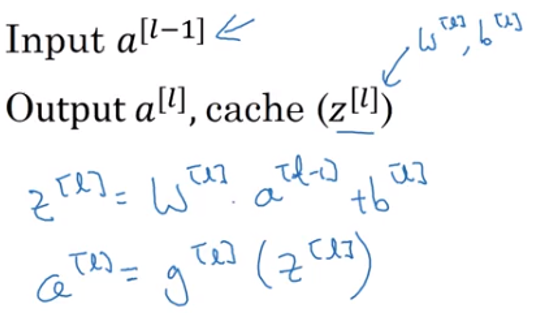 Input a^[l-1]
w^[l], b^[l]
Output a^[l], cache (z^[l])
z^[l] = W^[l] . a^[l-1] + b^[l]
a^[l] = g^[l] (z^[l])